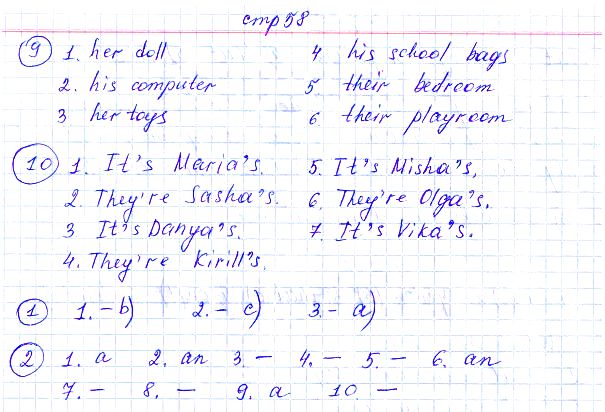 стр 58
9 1. her doll 4 his school bags
2. his computer 5 their bedroom
3 her toys 6 their playroom
10 1. It's Maria's. 5. It's Misha's.
2. They're Sasha's. 6. They're Olga's.
3 It's Danya's. 7. It's Vika's.
4. They're Kirill's.
1 1. - b) 2. - c) 3. - a)
2 1. a 2. an 3. - 4. - 5. - 6. an
7. - 8. - 9. a 10 -